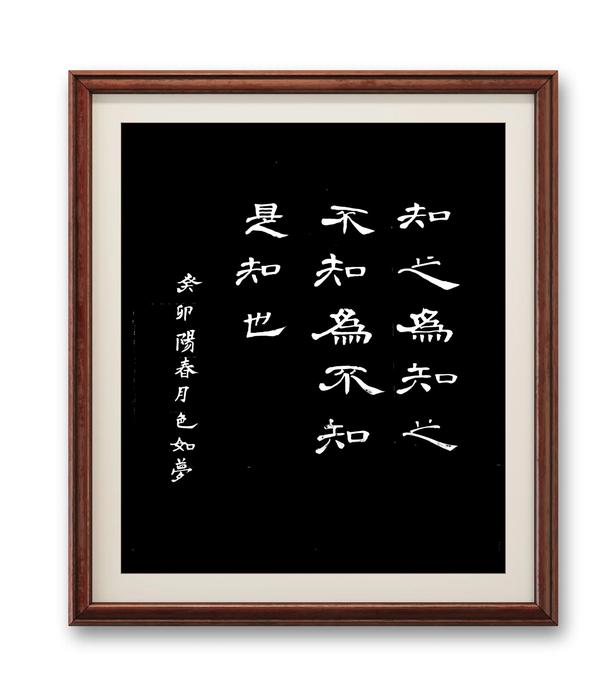 知之為知之
不知為不知
是知也
癸卯陽春月色如夢